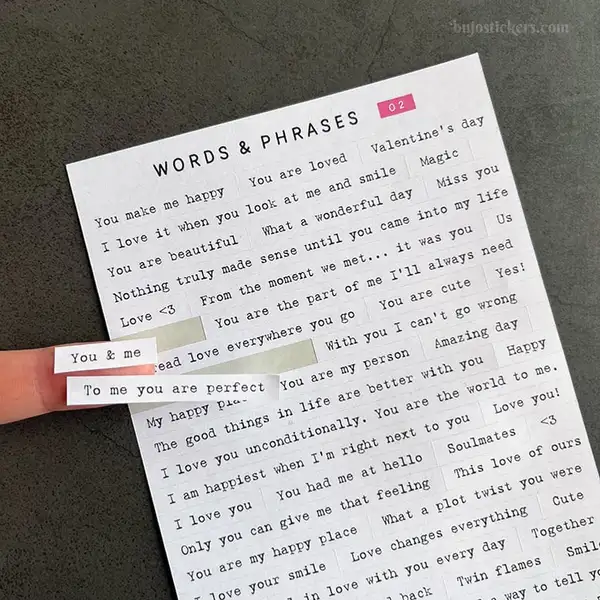 bujostickers.com
WORDS & PHRASES 02
You make me happy You are loved Valentine's day
I love it when you look at me and smile Magic
You are beautiful What a wonderful day Miss you
Nothing truly made sense until you came into my life
Love <3 From the moment we met... it was you Us
You are the part of me I'll always need
read love everywhere you go You are cute Yes!
You & me
With you I can't go wrong
To me you are perfect
My happy You are my person Amazing day
The good things in life are better with you Happy
I love you unconditionally. You are the world to me.
I am happiest when I'm right next to you Love you!
I love you You had me at hello Soulmates <3
Only you can give me that feeling This love of ours
You are my happy place What a plot twist you were
I love your smile Love changes everything Cute
in love with you every day Together
back Twin flames Smil
way to tell yo